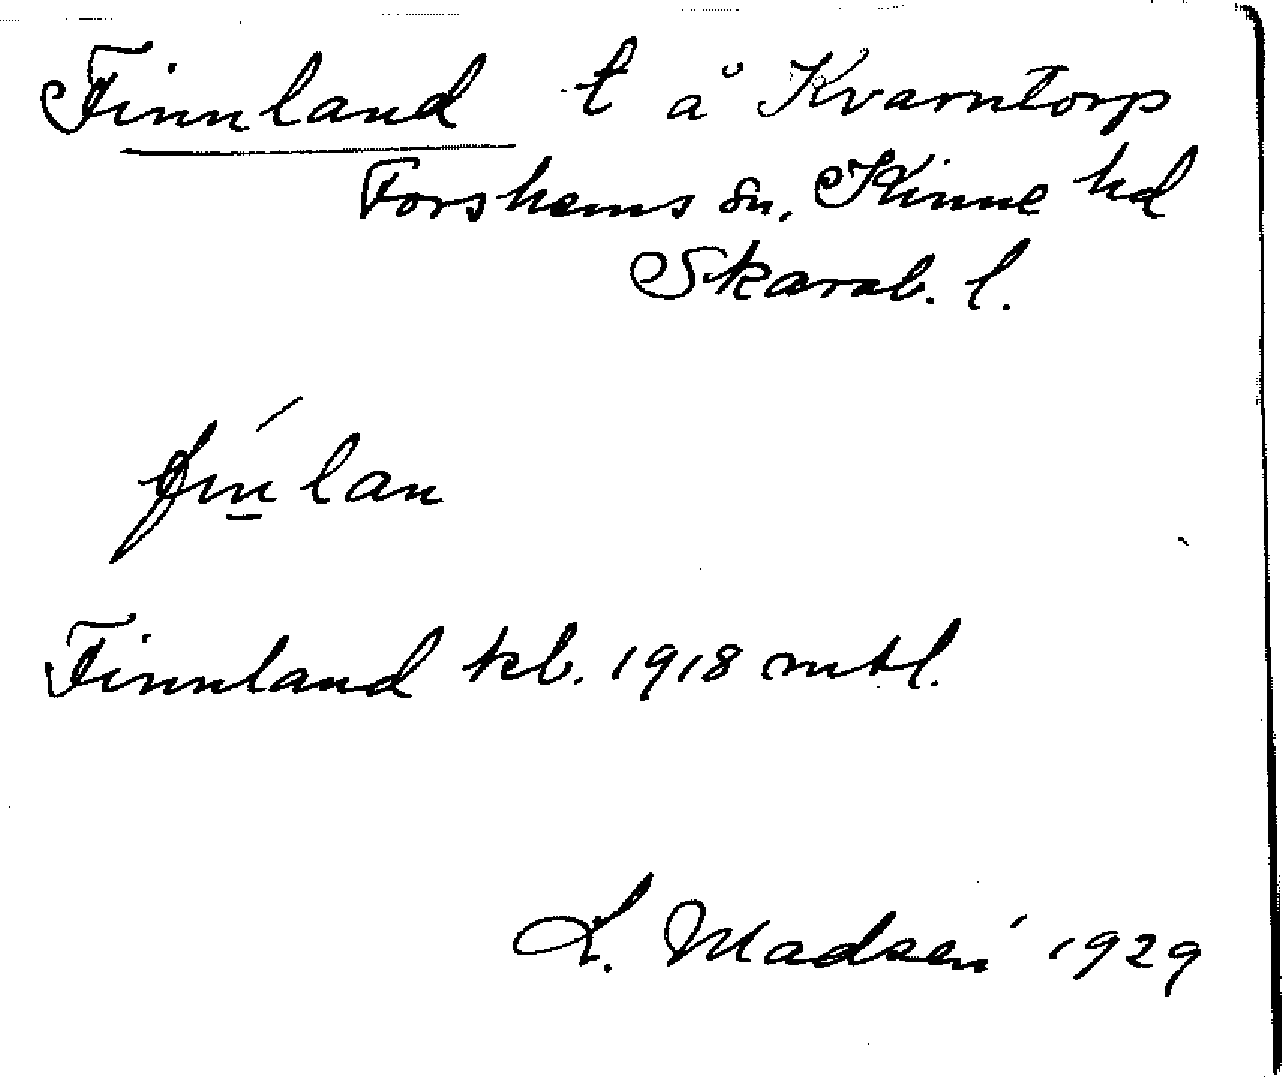 Finnland t å Kvarntorp
Forshems sn, Kinne hd
Skarab. l.
fin̠´lan
Finnland kb. 1918 mtl.
L. Madsén 1929